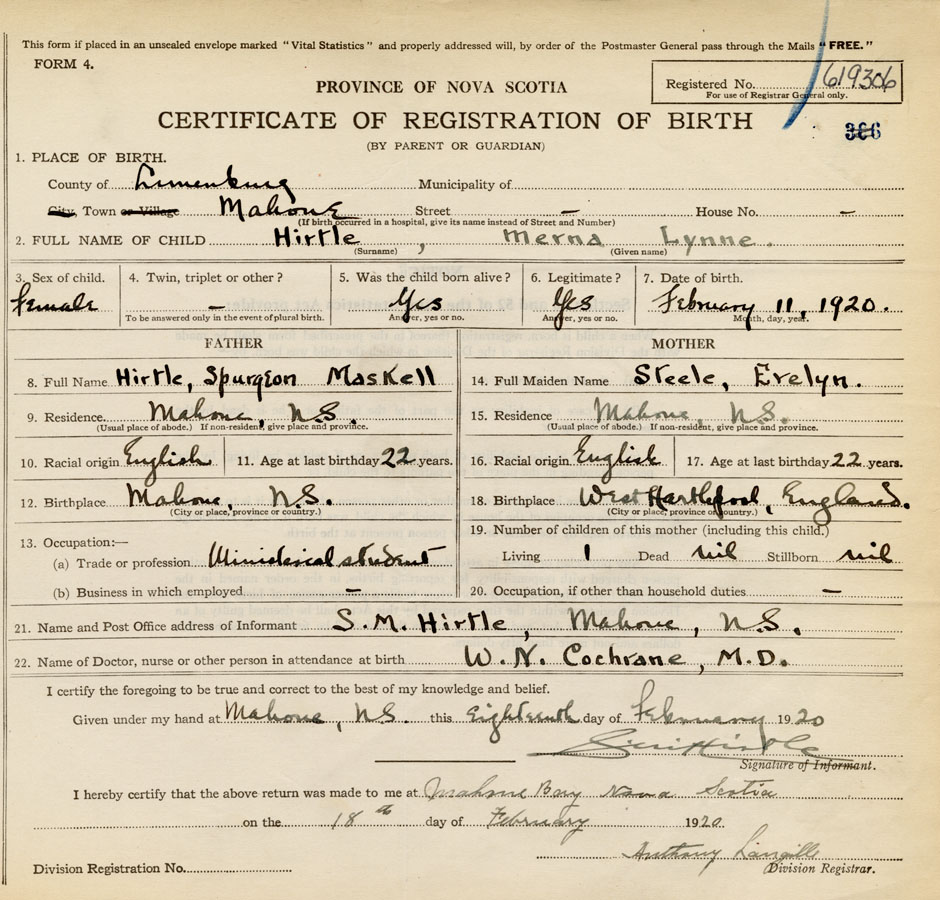 This form if placed in an unsealed envelope marked "Vital Statistics" and properly addressed will, by order of the Postmaster General pass through the Mails "FREE."
FORM 4.
Registered No. 619306
For use of Registrar General only.
PROVINCE OF NOVA SCOTIA
CERTIFICATE OF REGISTRATION OF BIRTH
386
(BY PARENT OR GUARDIAN)
1. PLACE OF BIRTH.
County of Lunenburg Municipality of
City, Town or Village Mahone Street – House No. –
(If birth occurred in a hospital, give its name instead of Street and Number)
2. FULL NAME OF CHILD Hirtle, Merna Lynne.
(Surname) (Given name)
3. Sex of child. 4. Twin, triplet or other? 5. Was the child born alive? 6. Legitimate? 7. Date of birth.
Female – Yes Yes February 11, 1920.
To be answered only in the event of plural birth. Answer, yes or no. Answer, yes or no. Month, day, year.
FATHER MOTHER
8. Full Name Hirtle, Spurgeon Maskell 14. Full Maiden Name Steele, Evelyn.
9. Residence Mahone, N.S. 15. Residence Mahone, N.S.
(Usual place of abode.) If non-resident, give place and province. (Usual place of abode.) If non-resident, give place and province.
10. Racial origin English 11. Age at last birthday 22 years. 16. Racial origin English 17. Age at last birthday 22 years.
12. Birthplace Mahone, N.S. 18. Birthplace West Hartlepool, England.
(City or place, province or country.) (City or place, province or country.)
13. Occupation:— 19. Number of children of this mother (including this child.)
(a) Trade or profession Ministerial student Living 1 Dead nil Stillborn nil
(b) Business in which employed – 20. Occupation, if other than household duties –
21. Name and Post Office address of Informant S.M. Hirtle, Mahone, N.S.
22. Name of Doctor, nurse or other person in attendance at birth W.N. Cochrane, M.D.
I certify the foregoing to be true and correct to the best of my knowledge and belief.
Given under my hand at Mahone, N.S. this Eighteenth day of February 1920
S.M. Hirtle
Signature of Informant.
I hereby certify that the above return was made to me at Mahone Bay Nova Scotia
on the 18th day of February 1920.
Anthony Langille
Division Registration No. Division Registrar.